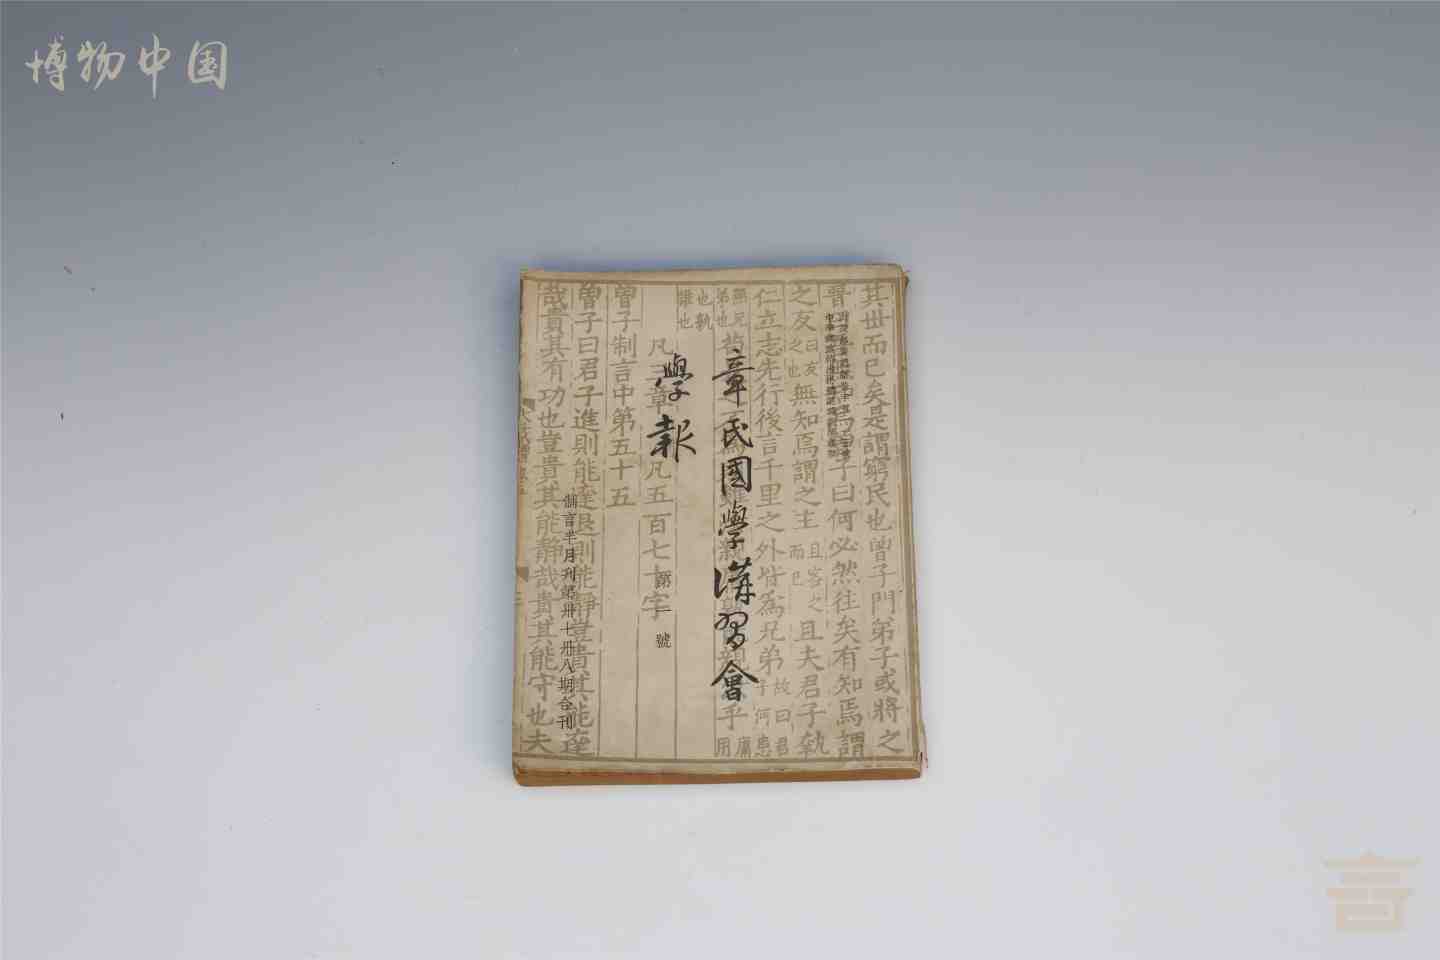 博物中国
章氏國學講習會
學報
第一號
制言半月刊第卅七卅八期合刊
其世而已矣是謂窮民也曾子門弟子或將之
晋
子曰何必然往矣有知焉謂
之友曰友之也無知焉謂之主且客之而已且夫君子執
仁立志先行後言千里之外皆為兄弟故曰君子何患
無兄弟也苟
親
乎庸用
也孰誰也
凡三章
凡五百七十字
曾子制言中第五十五
曾子曰君子進則能達退則能靜豈貴其能達
哉貴其有功也豈貴其能靜哉貴其能守也夫